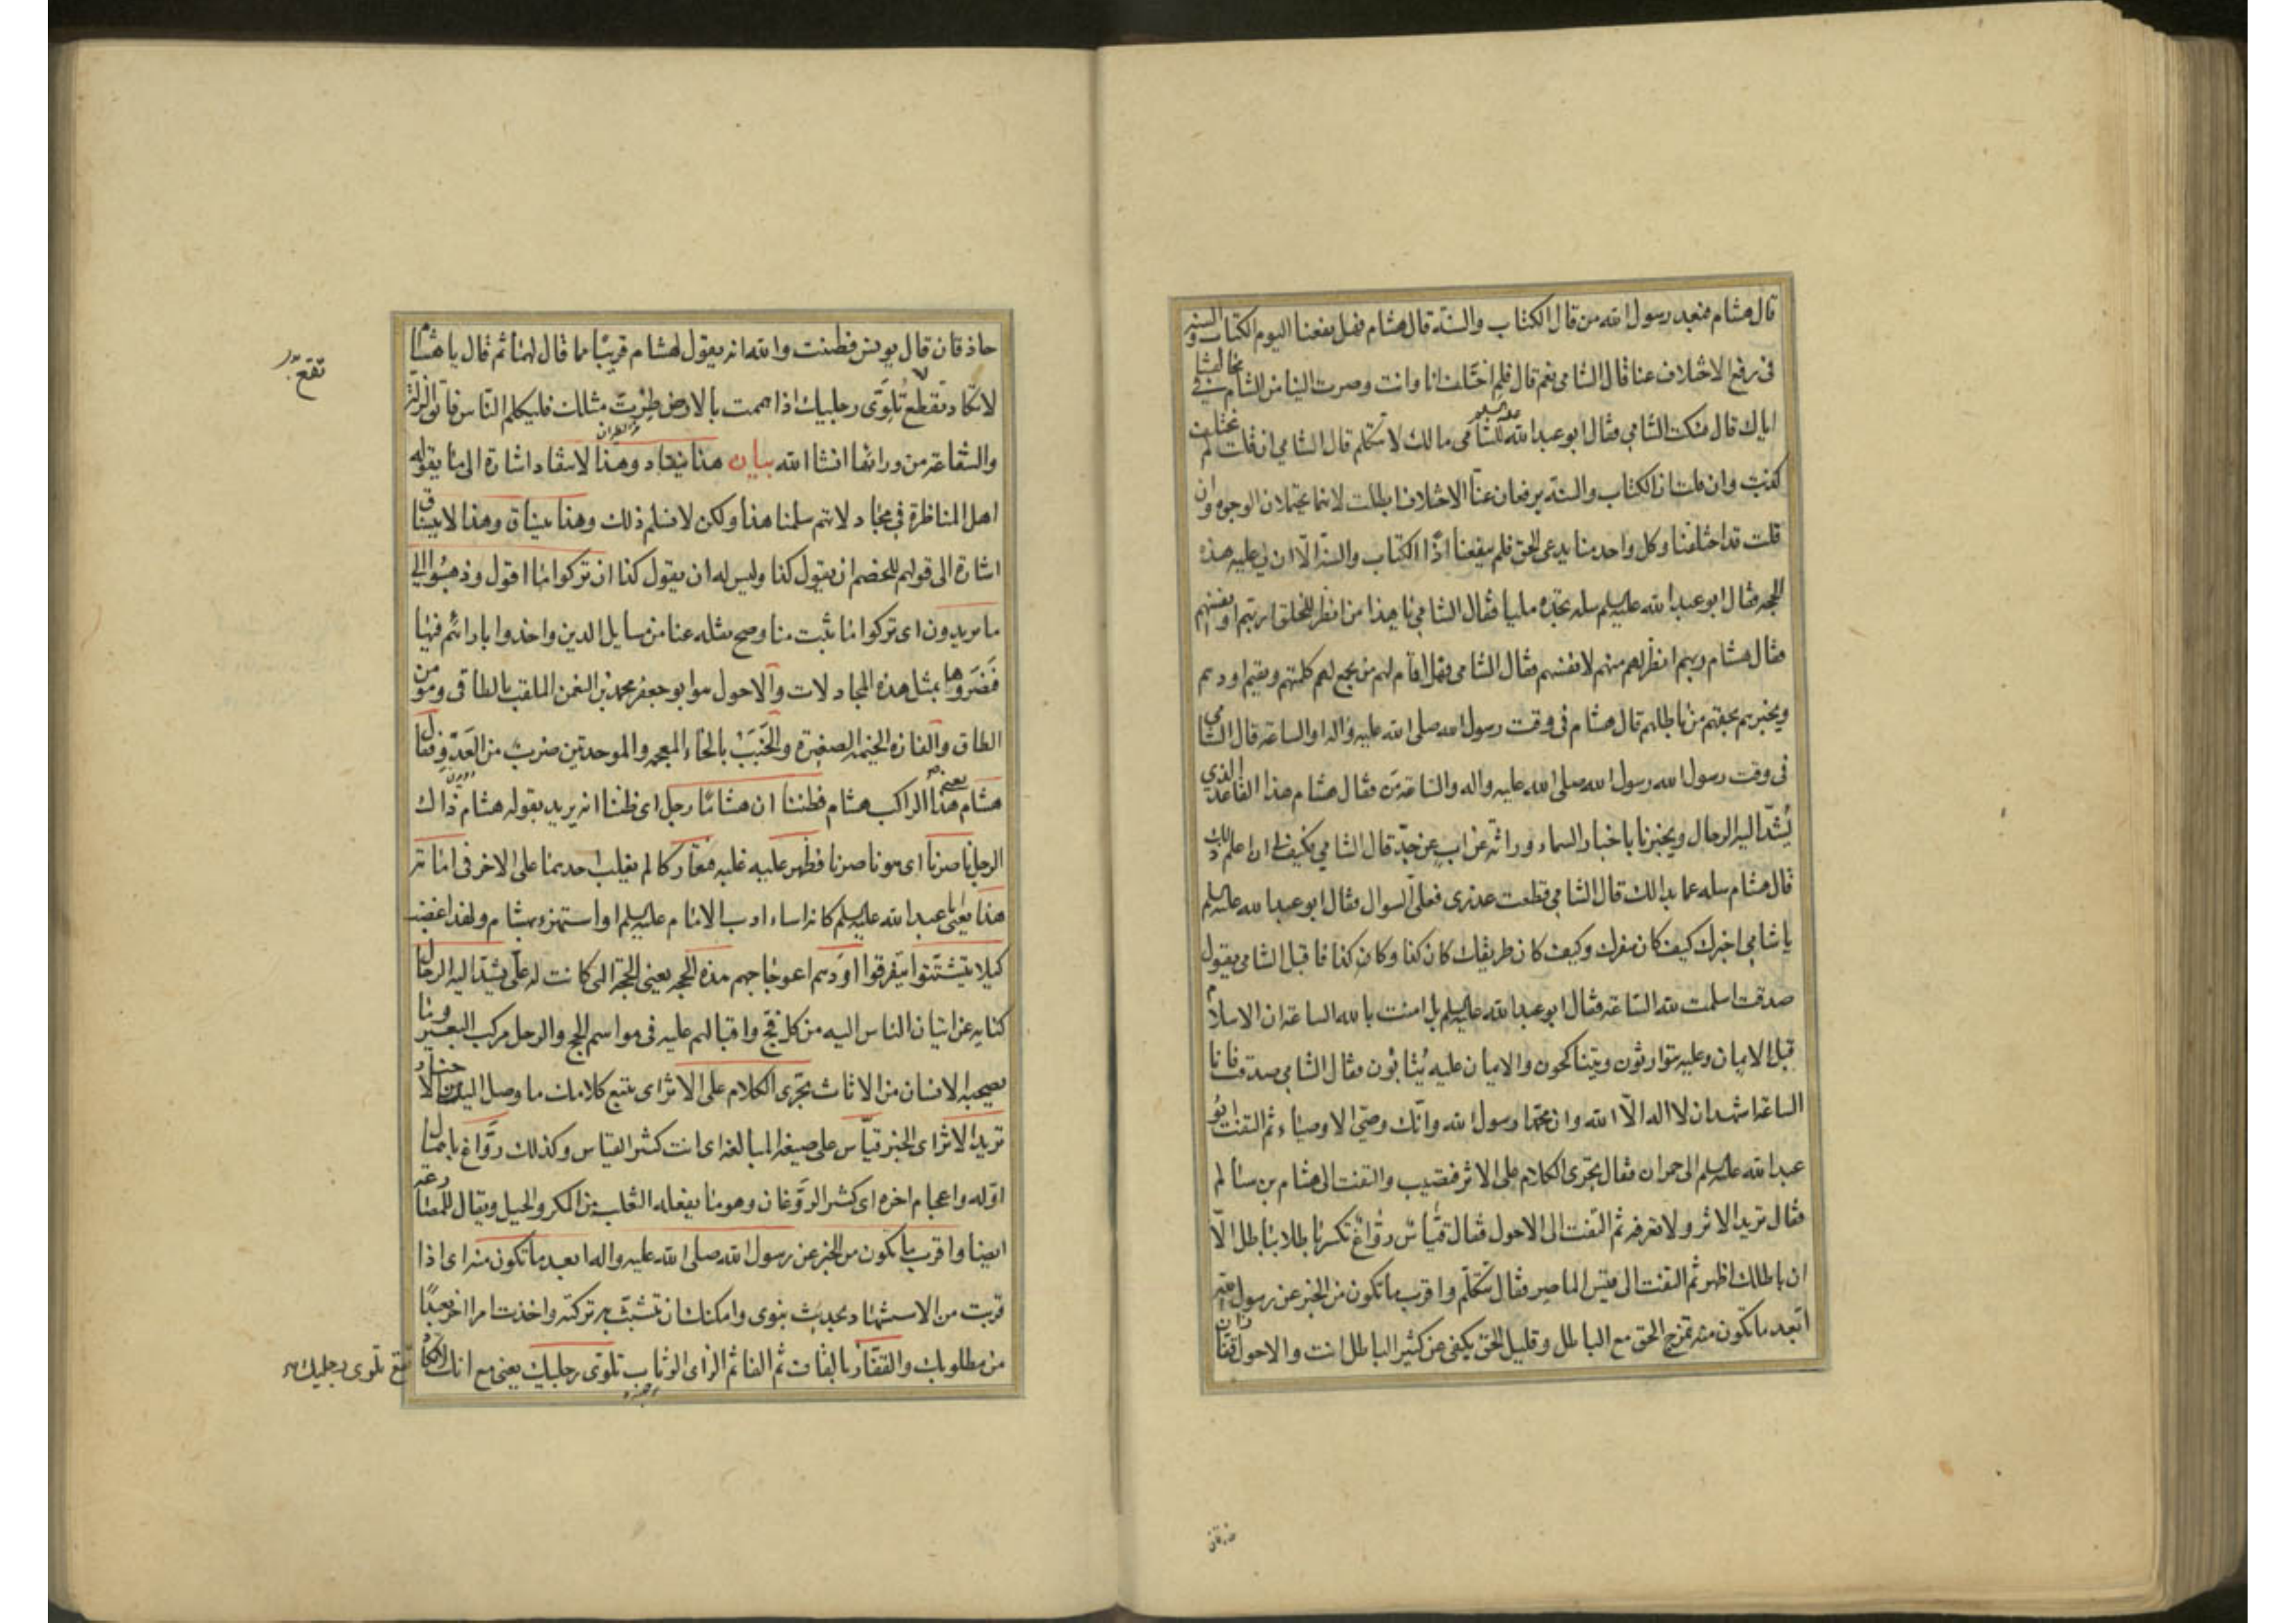 قال هشام فبعد رسول الله من قال الكتاب والسنة قال هشام فهل ينفعنا اليوم الكتاب والسنة
فى رفع الاختلاف عنا قال الشامى نعم قال فلم اختلفنا انا وانت وصرت الينا من الشام فى مخالفتنا
اياك قال فسكت الشامي فقال ابو عبد الله عليه السلم للشامى مالك لا تتكلم قال الشامي ان قلت لم نختلف
كذبت وان قلت ان الكتاب والسنة يرفعان عنا الاختلاف ابطلت لانهما يحتملان الوجوه وان
قلت قد اختلفنا وكل واحد منا يدعى الحق فلم ينفعنا اذًا الكتاب والسنة الّا ان لى عليه هذه
الحجه فقال ابو عبد الله عليه السلم سله تجده مليا فقال الشامى يا هذا من انظر للخلق اربهم او انفسهم
فقال هشام ربهم انظر لهم منهم لانفسهم فقال الشامى فهل اقام لهم من يجمع لهم كلمتهم ويقيم اودهم
ويخبرهم بحقهم من باطلهم قال هشام فى وقت رسول الله صلى الله عليه واله او الساعة قال الشامي
فى وقت رسول الله رسول الله صلى الله عليه واله والساعة من فقال هشام هذا القاعد الذي
يُشدّ اليه الرحال ويخبرنا باخبار السماء وراثة عن ابٍ عن جدّ قال الشامي فكيف لى ان اعلم ذلك
قال هشام سله عما بدا لك قال الشامي قطعت عذرى فعلىّ السوال فقال ابو عبد الله عليه السلم
يا شامي اخبرك كيف كان سفرك وكيف كان طريقك كان كذا وكان كذا فاقبل الشامى يقول
صدقت اسلمت لله الساعة فقال ابو عبد الله عليه السلم بل امنت بالله الساعة ان الاسلام
قبل الايمان وعليه يتوارثون ويتناكحون والايمان عليه يُثابُون فقال الشامي صدقت فانا
الساعة اشهد ان لا اله الّا الله وان محمّدا رسول الله وانّك وصىّ الاوصياء ثم التفت ابو
عبد الله عليه السلم الى حمران فقال تجرى الكلام على الاثر فتصيب والتفت الى هشام بن سالم
فقال تريد الاثر ولا تعرفه ثم التفت الى الاحول فقال قيّاس روّاغ تكسر باطلا بباطل الّا
ان باطلك اظهر ثم التفت الى قيس الماصر فقال تتكلّم واقرب ما تكون من الخبر عن رسول الله
ابعد ما تكون منه تمزج الحق مع الباطل وقليل الحق يكفى عن كثير الباطل انت والاحول قفّازان
حاذقان
حاذقان قال يونس فظننت والله انه يقول لهشام قريبًا مما قال لهما ثم قال يا هشام
لا تكاد تقع تلوى رجليك اذا هممت بالارض طِرْتَ مثلك فليكلم الناس فاتق الزلة
والشفاعة من ورائها انشا الله بيان هذا ينقاد وهذا لا ينقاد اشارة الى ما يقوله
اهل المناظرة فى مجادلاتهم سلمنا هذا ولكن لا نسلم ذلك وهذا ينساق وهذا لا ينساق
اشارة الى قولهم للخصم ان يقول كذا وليس له ان يقول كذا ان تركوا ما اقول وذهبوا الى
ما يريدون اى تركوا ما ثبت منا وصح نقله عنا من مسايل الدين واخذوا باراءهم فيها
فنصروها بمثل هذه المجادلات والاحول هو ابو جعفر محمد بن النعمن الملقب بالطاقى ومومن
الطاق والفازه الخيمه الصغيرة والخَبَبَ بالخاء المعجمه والموحدتين ضرب من العَدْو فقال
هشام يعنى هذا الراكب هشام فظننا ان هشاما رجل اى ظننا انه يريد بقوله هشام ذاك
الرجل ناصرنا اى هو ناصرنا فظهر عليه غلبه فتعاركا لم يغلب احديهما على الاخر فى اما تر
هذا يعنى ابا عبد الله عليه السلم كانه اساء ادب الامام عليه السلم او استهزء بهشام ولهذا غضب
كيلا يتشتتوا يتفرقوا اودهم اعوجاجهم هذه الحجه يعنى الحجة التى كانت له علىّ يشدّ اليه الرحال
كنايه عن اتيان الناس اليه من كل فج واقبالهم عليه فى مواسم الحج والرحل مركب البعير وما
يصحبه الانسان من الاثاث تجرى الكلام على الاثر اى تتبع كلامك ما وصل اليك من الاخبار
تريد الاثر اى الخبر قيّاس على صيغة المبالغة اى انت كثير القياس وكذلك روّاغ باهمال
اوّله واعجام اخره اى كثير الرّوَغان وهو ما يفعله الثعلب من المكر والحيل ويقال للمصارعة
ايضا واقرب ما تكون من الخبر عن رسول الله صلى الله عليه واله ابعد ما تكون منه اى اذا
قربت من الاستشهاد بحديث نبوى وامكنك ان تتشبث به تركته واخذت امرا اخر بعيدًا
من مطلوبك والقفّاز بالقاف ثم الفا ثم الزاى الوثاب تلوى رجليك يعنى مع انك لا تكاد
تقع
تقع تلوى رجليك